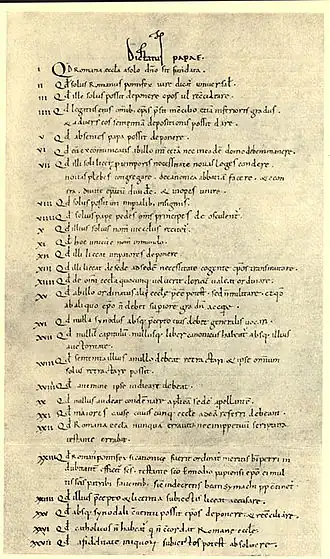 Dictatus papae.
I Qd Romana eccla a solo dno sit fundata.
II Qd solus Romanus pontifex iure dicat universal.
III Qd ille solus possit deponere epos vl reconciliare.
IIII Qd legatus eius omib; epis psit in concilio etia inferioris gradus.
& adversus eos sententia depositionis possit dare.
V Qd absentes papa possit deponere.
VI Qd cu excomunicatis ab illo int cetera nec in eade domo debem manere.
VII Qd illi soli licet p temporis necessitate novas leges condere.
novas plebes congregare. de canonica abbatia facere. & econ
tra. divite episcopatu divide. & inopes unire.
VIII Qd solus possit uti imperialib; insigniis.
VIIII Qd solius pape pedes oms principes deosculent.
X Qd illius solius nom in ecclis recitet.
XI Qd hoc unicu e nom in mundo.
XII Qd illi liceat imperatores deponere.
XIII Qd illi liceat de sede ad sede necessitate cogente epos transmutare.
XIIII Qd de omi eccla quocunq; voluerit clericu valeat ordinare.
XV Qd ab illo ordinatus alii eccle pee potest. sed n militare. et qd
ab aliquo epo n debet superiore gradu accipe.
XVI Qd nulla synodus absq; precepto eius debet generalis vocari.
XVII Qd nullu capitulu nullusq; liber canonicus habeat absq; illius
auctoritate.
XVIII Qd sententia illius a nullo debeat retractari. & ipse omniu
solus retractare possit.
XVIIII Qd a nemine ipse iudicari debeat.
XX Qd nullus audeat condemnare apostolica sede apellante.
XXI Qd maiores cause cuiuscunq; eccle ad ea referri debeant.
XXII Qd Romana eccla nunqua erravit nec in ppetuu scriptura
testante errabit.
XXIII Qd Romanus pontifex si canonice fuerit ordinatus meritis b petri in
dubitanter efficit scs. testante sco Ennodio papiensi epo ei mul
tis scis patrib; faventib; sic in decretis beati symachi pp continet.
XXIIII Qd illius precepto & licentia subiectis liceat accusare.
XXV Qd absq; synodali conventu possit epos deponere & reconciliare.
XXVI Qd catholicus n habeat q n concordat Romane eccle.
XXVII Qd a fidelitate iniquoru subiectos potest absolvere.